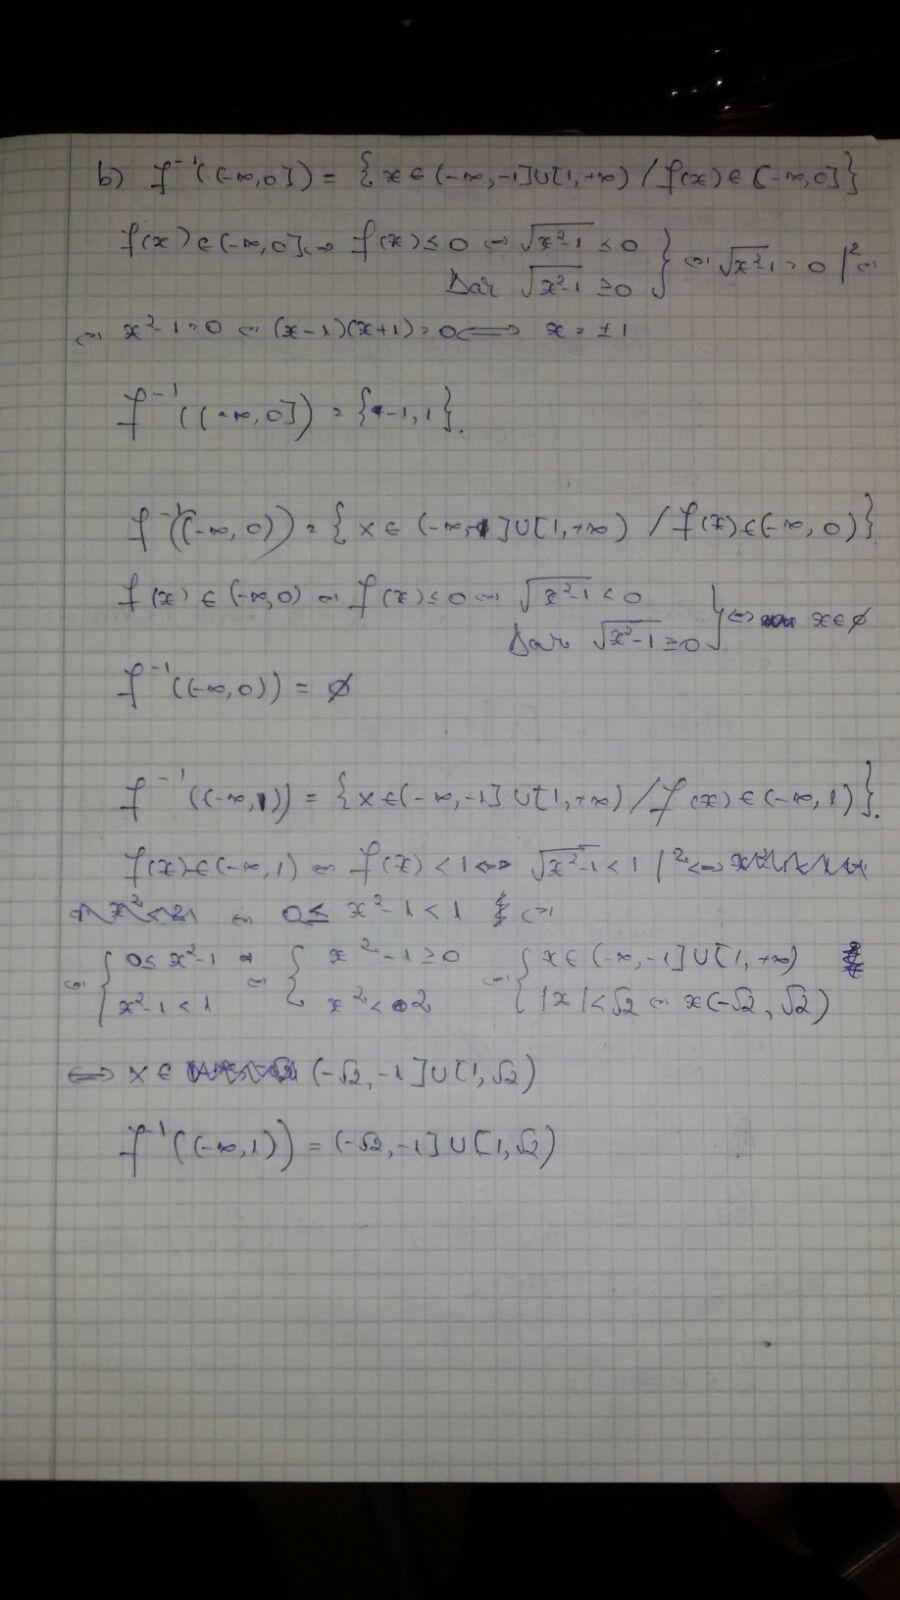 b) f⁻¹((-∞,0]) = {x∈(-∞,-1]∪[1,+∞) / f(x)∈[-∞,0]}
f(x)∈(-∞,0] ⇔ f(x)≤0 ⇔ √x²-1 ≤0
Dar √x²-1 ≥0 } ⇔ √x²-1 = 0 |² ⇔
⇔ x²-1=0 ⇔ (x-1)(x+1)=0 ⇔ x=±1
f⁻¹((-∞,0]) = {-1,1}.
f⁻¹((-∞,0)) = {x∈(-∞,-1]∪[1,+∞) / f(x)∈(-∞,0)}
f(x)∈(-∞,0) ⇔ f(x)≤0 ⇔ √x²-1 <0
Dar √x²-1 ≥0 } ⇔ x∈∅
f⁻¹((-∞,0)) = ∅
f⁻¹((-∞,1)) = {x∈(-∞,-1]∪[1,+∞) / f(x)∈(-∞,1)}.
f(x)∈(-∞,1) ⇔ f(x)<1 ⇔ √x²-1 <1 |² ⇔
⇔ 0≤ x²-1<1 ⇔
⇔ { 0≤ x²-1 ⇔ { x²-1≥0 ⇔ { x∈(-∞,-1]∪[1,+∞)
x²-1<1 x²<2 |x|<√2 ⇔ x(-√2,√2)
⇔ x∈ (-√2,-1]∪[1,√2)
f⁻¹((-∞,1)) = (-√2,-1]∪[1,√2)